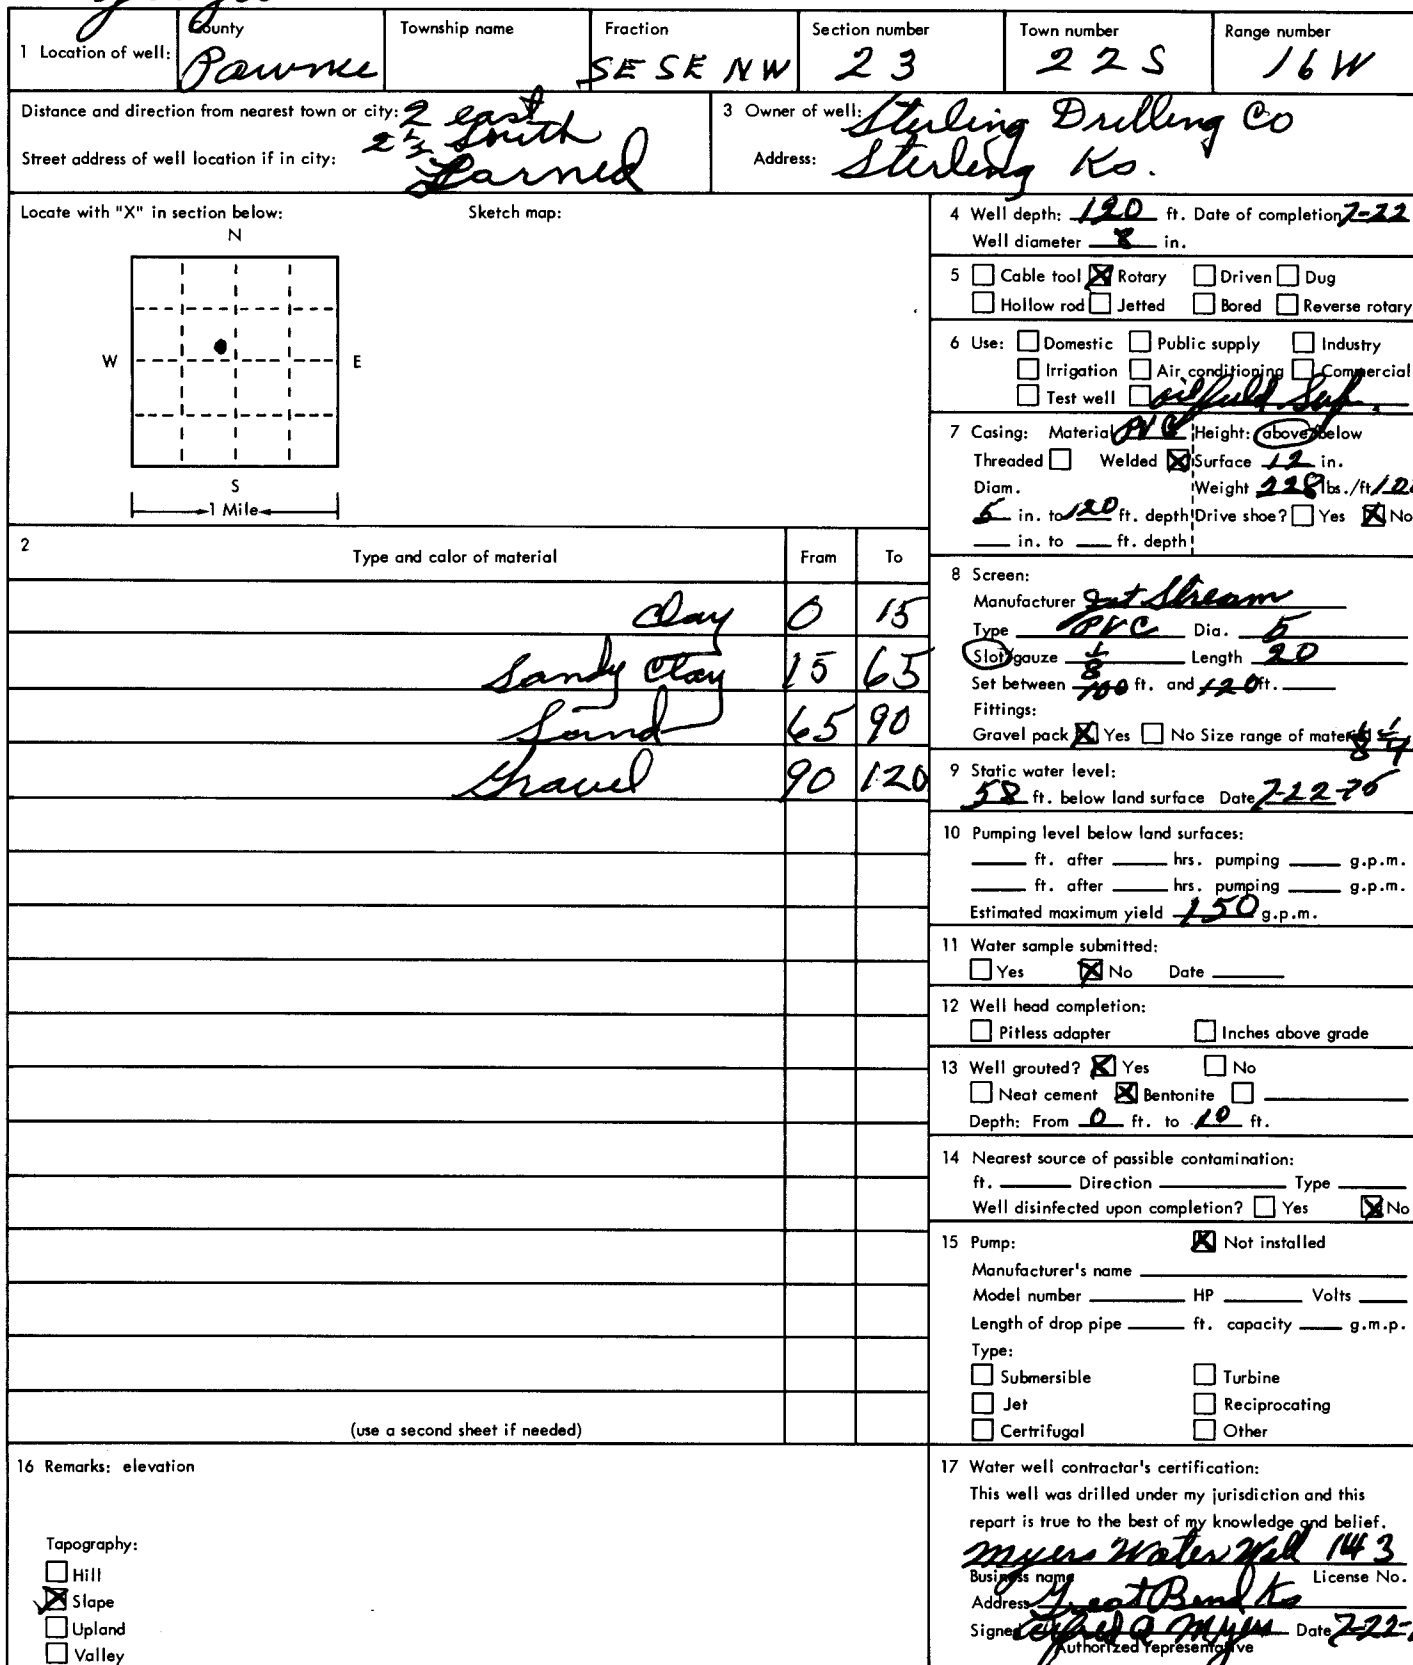 County Township name Fraction Section number Town number Range number
1 Location of well: Pawnee SE SE NW 23 22S 16W
Distance and direction from nearest town or city: 2 east
2 1/2 South
Street address of well location if in city: Larned
3 Owner of well: Sterling Drilling Co
Address: Sterling Ks.
Locate with "X" in section below: Sketch map:
N
W E
S
1 Mile
4 Well depth: 120 ft. Date of completion 7-22
Well diameter 8 in.
5 Cable tool Rotary Driven Dug
Hollow rod Jetted Bored Reverse rotary
6 Use: Domestic Public supply Industry
Irrigation Air conditioning Commercial
Test well oilfield Sup.
7 Casing: Material PVC Height: above/below
Threaded Welded Surface 12 in.
Diam. Weight 228 lbs./ft/
5 in. to 120 ft. depth Drive shoe? Yes No
in. to ft. depth
2 Type and color of material From To
Clay 0 15
Sandy Clay 15 65
Sand 65 90
Gravel 90 120
(use a second sheet if needed)
8 Screen:
Manufacturer Jet Stream
Type PVC Dia. 5
Slot/gauze 1/8 Length 20
Set between 100 ft. and 120 ft.
Fittings:
Gravel pack Yes No Size range of material 1/8 1/4
9 Static water level:
58 ft. below land surface Date 7-22-76
10 Pumping level below land surfaces:
ft. after hrs. pumping g.p.m.
ft. after hrs. pumping g.p.m.
Estimated maximum yield 150 g.p.m.
11 Water sample submitted:
Yes No Date
12 Well head completion:
Pitless adapter Inches above grade
13 Well grouted? Yes No
Neat cement Bentonite
Depth: From 0 ft. to 10 ft.
14 Nearest source of possible contamination:
ft. Direction Type
Well disinfected upon completion? Yes No
15 Pump: Not installed
Manufacturer's name
Model number HP Volts
Length of drop pipe ft. capacity g.m.p.
Type:
Submersible Turbine
Jet Reciprocating
Certrifugal Other
16 Remarks: elevation
Tapography:
Hill
Slape
Upland
Valley
17 Water well contractor's certification:
This well was drilled under my jurisdiction and this
repart is true to the best of my knowledge and belief.
Myers Water Well 143
Business name License No.
Address Great Bend Ks
Signed Q Myers Date 7-22-
Authorized representative